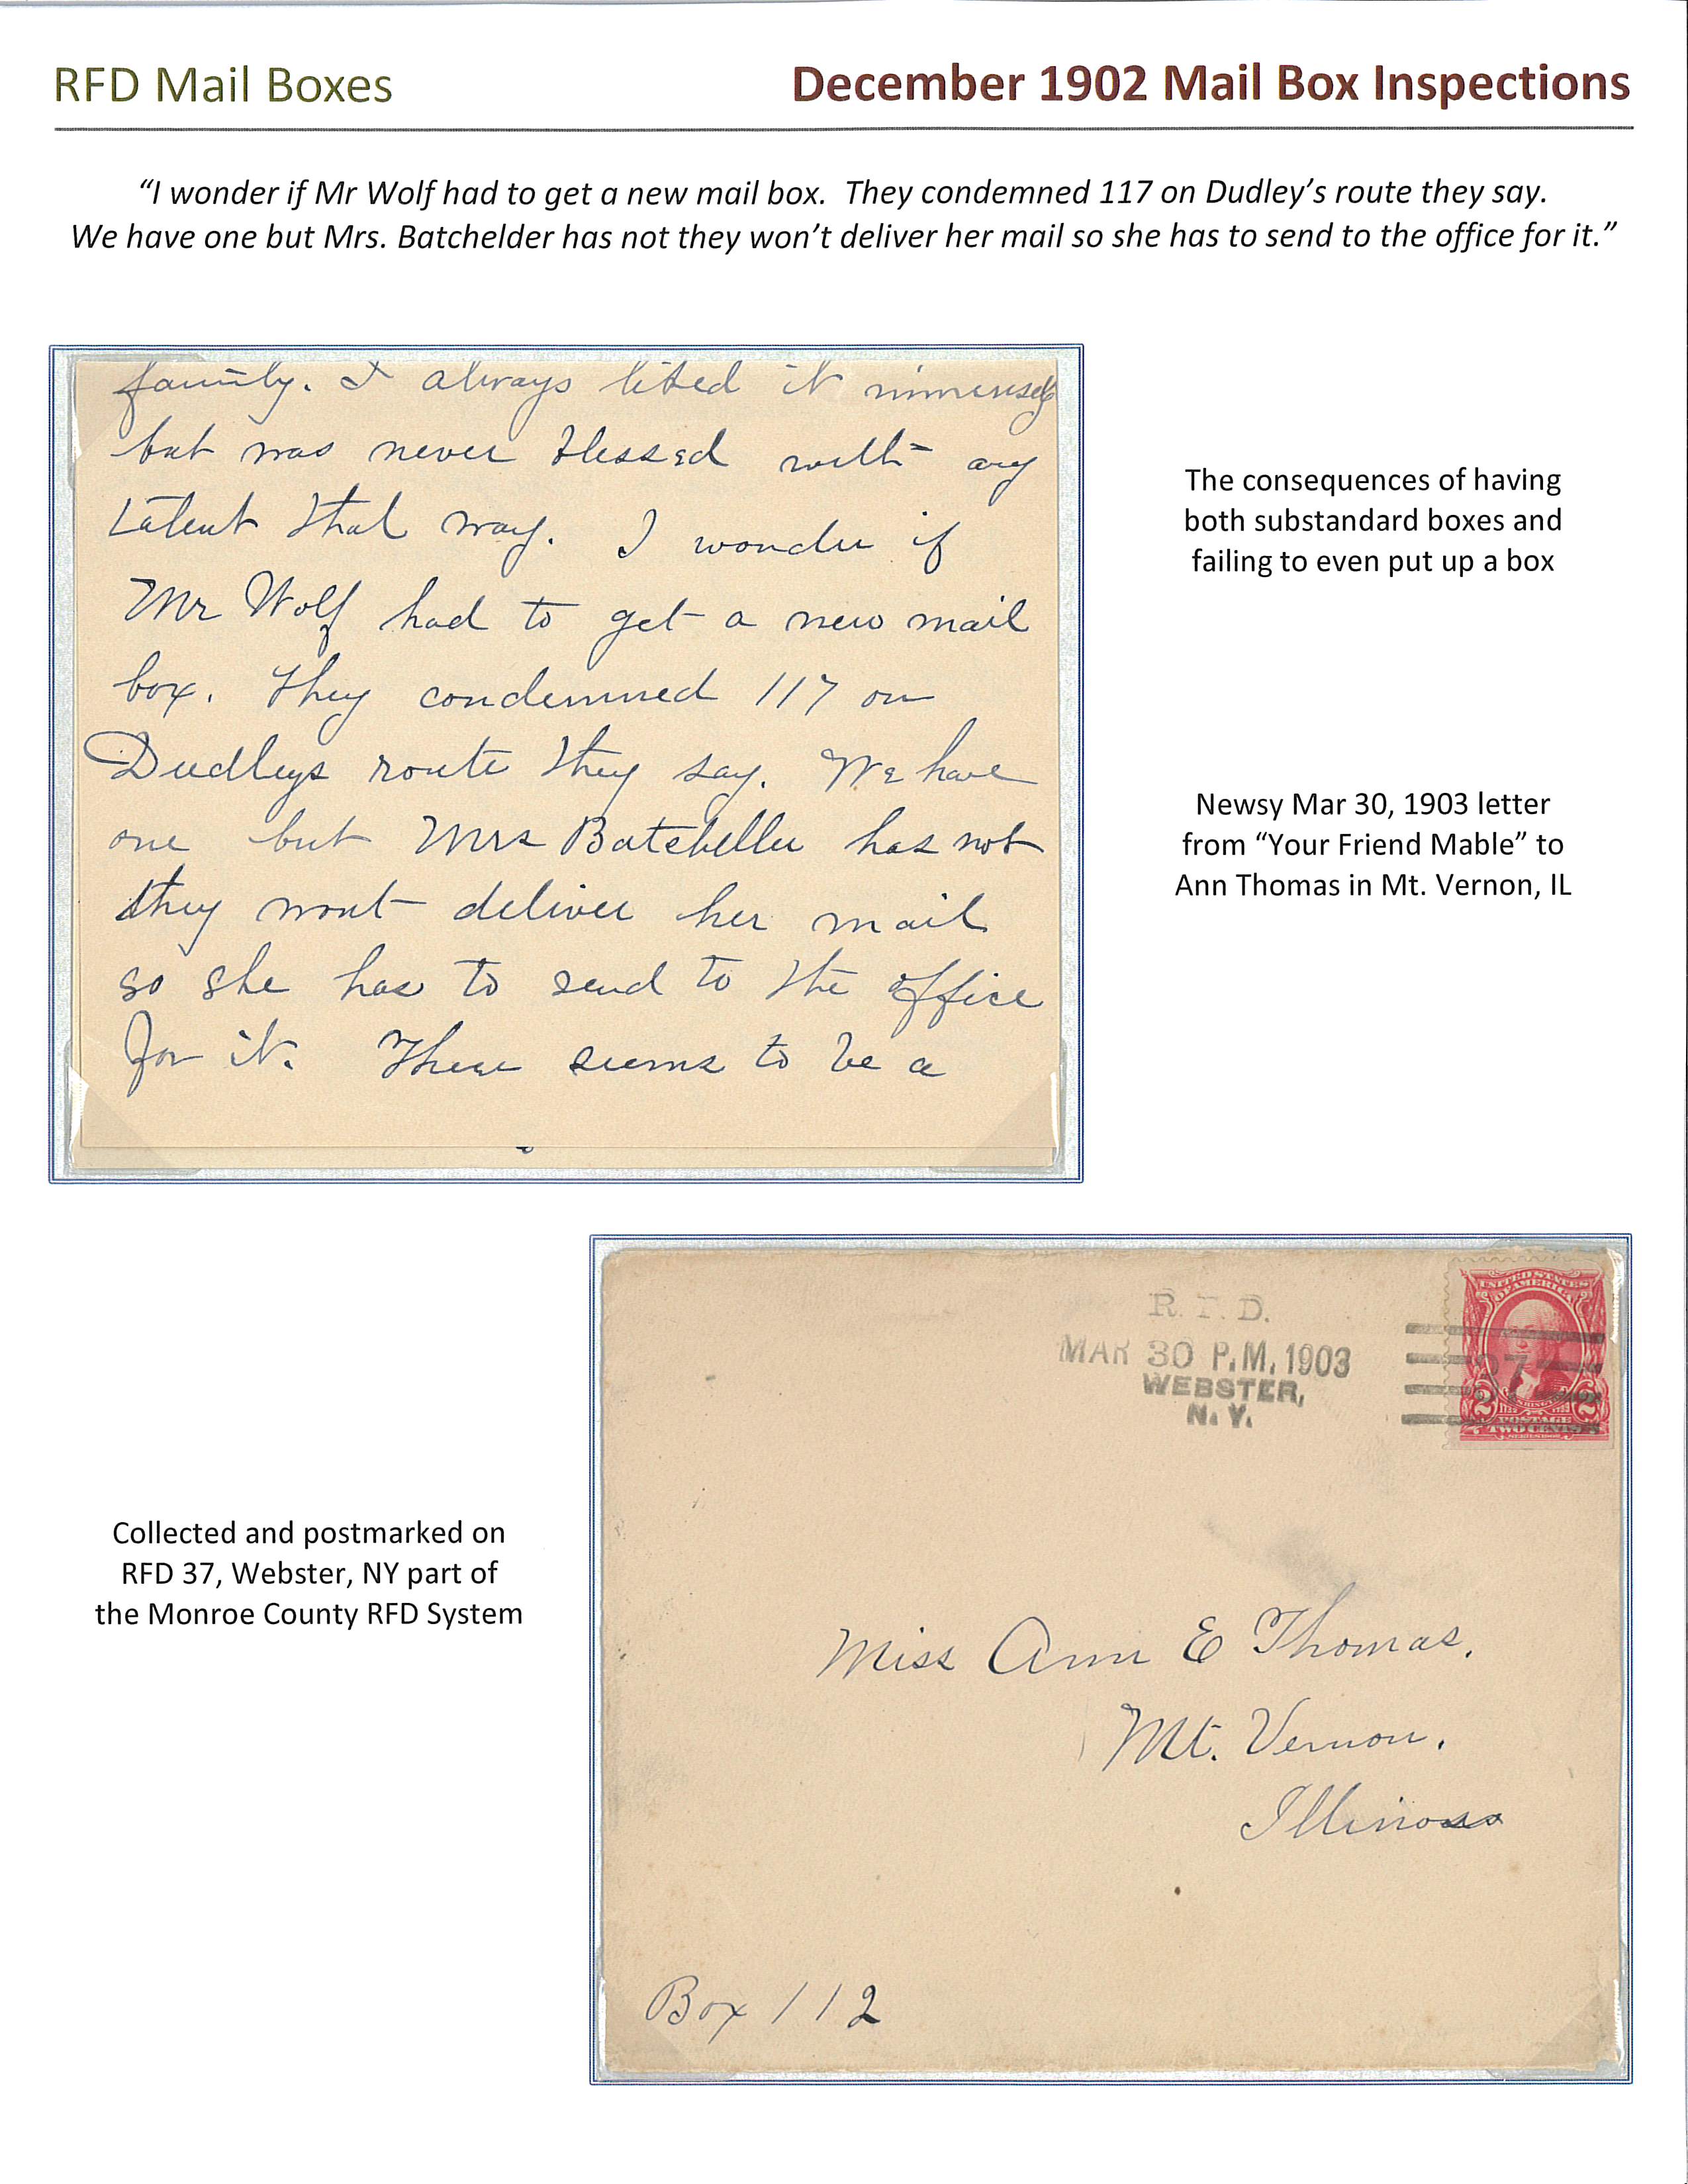 RFD Mail Boxes
December 1902 Mail Box Inspections
“I wonder if Mr Wolf had to get a new mail box.  They condemned 117 on Dudley’s route they say.
We have one but Mrs. Batchelder has not they won’t deliver her mail so she has to send to the office for it.”
family. I always liked it immensely
but was never blessed with any
talent that way. I wonder if
Mr Wolf had to get a new mail
box. They condemned 117 on
Dudleys route they say. We have
one but Mrs Batcheller has not
they wont deliver her mail
so she has to send to the office
for it. There seems to be a
The consequences of having
both substandard boxes and
failing to even put up a box
Newsy Mar 30, 1903 letter
from “Your Friend Mable” to
Ann Thomas in Mt. Vernon, IL
R. F. D.
MAR 30 P.M. 1903
WEBSTER,
N. Y.
37
UNITED STATES
OF AMERICA
2 2
POSTAGE
TWO CENTS
Collected and postmarked on
RFD 37, Webster, NY part of
the Monroe County RFD System
Miss Ann E Thomas.
Mt. Vernon.
Illinois
Box 112